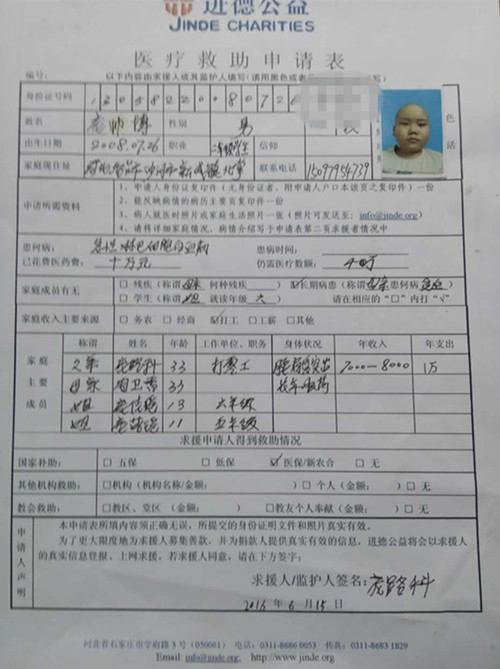 进德公益
JINDE CHARITIES
医疗救助申请表
编号： 以下内容由求援人或其监护人填写(请用黑色或者 写)
身份证号码
姓名 帅博 性别 男
出生日期 2008.07.26 职业 二年级学生 信仰
家庭现住址 联系电话
色 话
申请所需资料
1、申请人身份证复印件（无身份证者，附申请人户口本该页之复印件）一份
2、能反映病情的病历主要页复印件一份
3、病人就医时照片或家庭生活照片一张（照片可发送至：info@jinde.org）
4、请将详细家庭情况、病情介绍写于申请表第二页求援者情况中
患何病： 急性淋巴细胞白血病 患病时间：
已花费医药费： 十万元 仍需医疗数额：
家庭成员有无 □残疾（称谓 母亲 何种残疾 ） ☑长期病患（称谓 患何病 ）
□学生（称谓 姐 就读年级 六 ） 请在相应的“□”内打“√”
家庭收入主要来源 □务农 □经商 ☑打工 □工薪 □其他
家庭主要成员
称谓 姓名 年龄 工作单位、职务 身体状况 年收入 年支出
父亲 路科 33 打零工 腰间盘突出 7000—8000 1万
母亲 33 长年服药
姐 13 六年级
姐 11 五年级
求援申请人得到救助情况
国家补助： □五保 □低保 ☑医保/新农合 □无
其他机构救助： □机构（机构名称/金额： ） □个人（金额： ） □无
教会救助： □教区、堂区（金额： ） □教友个人奉献（金额： ） □无
申请人声明
本申请表所填内容须正确无误，所提交的身份证明文件和照片真实有效。
为了更大限度地为求援人募集善款，并为捐款人提供真实有效的信息，进德公益将会以求援人
的真实信息登报、上网求援。若求援人同意，请在下方签字：
求援人/监护人签名： 路科
2016年6月15日
河北省石家庄市学府路3号（050061） 电话：0311-8686 0053 传真：0311-8683 1829
Email: info@jinde.org, http://www.jinde.org